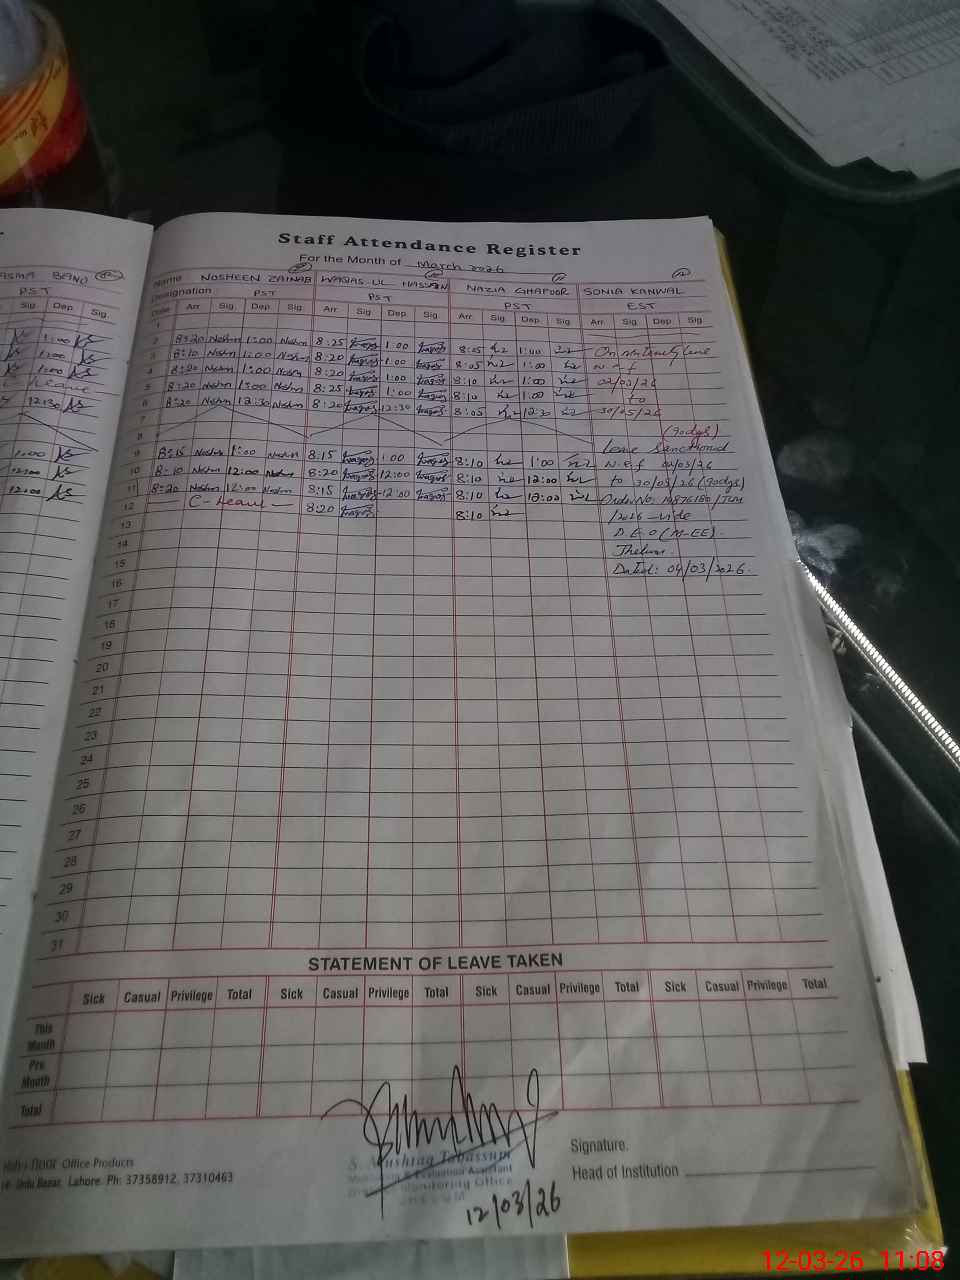 ASMA BANO
PST
Sig. Dep. Sig.
1:00
1:00
1:00
C Leave
12:30
1:00
12:00
12:00
Staff Attendance Register
For the Month of March 2026
Name NOSHEEN ZAINAB WAQAS UL HASSAN NAZIA GHAFOOR SONIA KANWAL
Designation PST PST PST EST
Date Arr. Sig. Dep. Sig. Arr. Sig. Dep. Sig. Arr. Sig. Dep. Sig. Arr. Sig. Dep. Sig.
1
2 8:20 Noshin 1:00 Noshin 8:25 1:00 8:05 1:00 On Maternity Leave
3 8:10 Noshin 1:00 Noshin 8:20 1:00 8:05 1:00 w.e.f
4 8:20 Noshin 1:00 Noshin 8:20 1:00 8:10 1:00 02/03/26
5 8:20 Noshin 1:00 Noshin 8:25 1:00 8:10 1:00 to
6 8:20 Noshin 12:30 Noshin 8:20 12:30 8:05 12:30 30/05/26
7 (90dys)
8 Leave Sanctioned
9 8:15 Noshin 1:00 Noshin 8:15 1:00 8:10 1:00 w.e.f 02/03/26
10 8:10 Noshin 12:00 Noshin 8:20 12:00 8:10 12:00 to 30/05/26 (90dys)
11 8:20 Noshin 12:00 Noshin 8:15 12:00 8:10 12:00 Order No:
12 C-Leave 8:20 8:10 /2026 vide
13 D.E.O (M-EE)
14 Jhelum.
15 Dated: 04/03/2026.
16
17
18
19
20
21
22
23
24
25
26
27
28
29
30
31
STATEMENT OF LEAVE TAKEN
Sick Casual Privilege Total Sick Casual Privilege Total Sick Casual Privilege Total Sick Casual Privilege Total
This Month
Pre Month
Total
Office Products
Urdu Bazar, Lahore. Ph: 37358912, 37310463
S. Mushtaq Tabassum
Monitoring & Evaluation Assistant
Monitoring Office
12/03/26
Signature.
Head of Institution
12-03-26 11:08